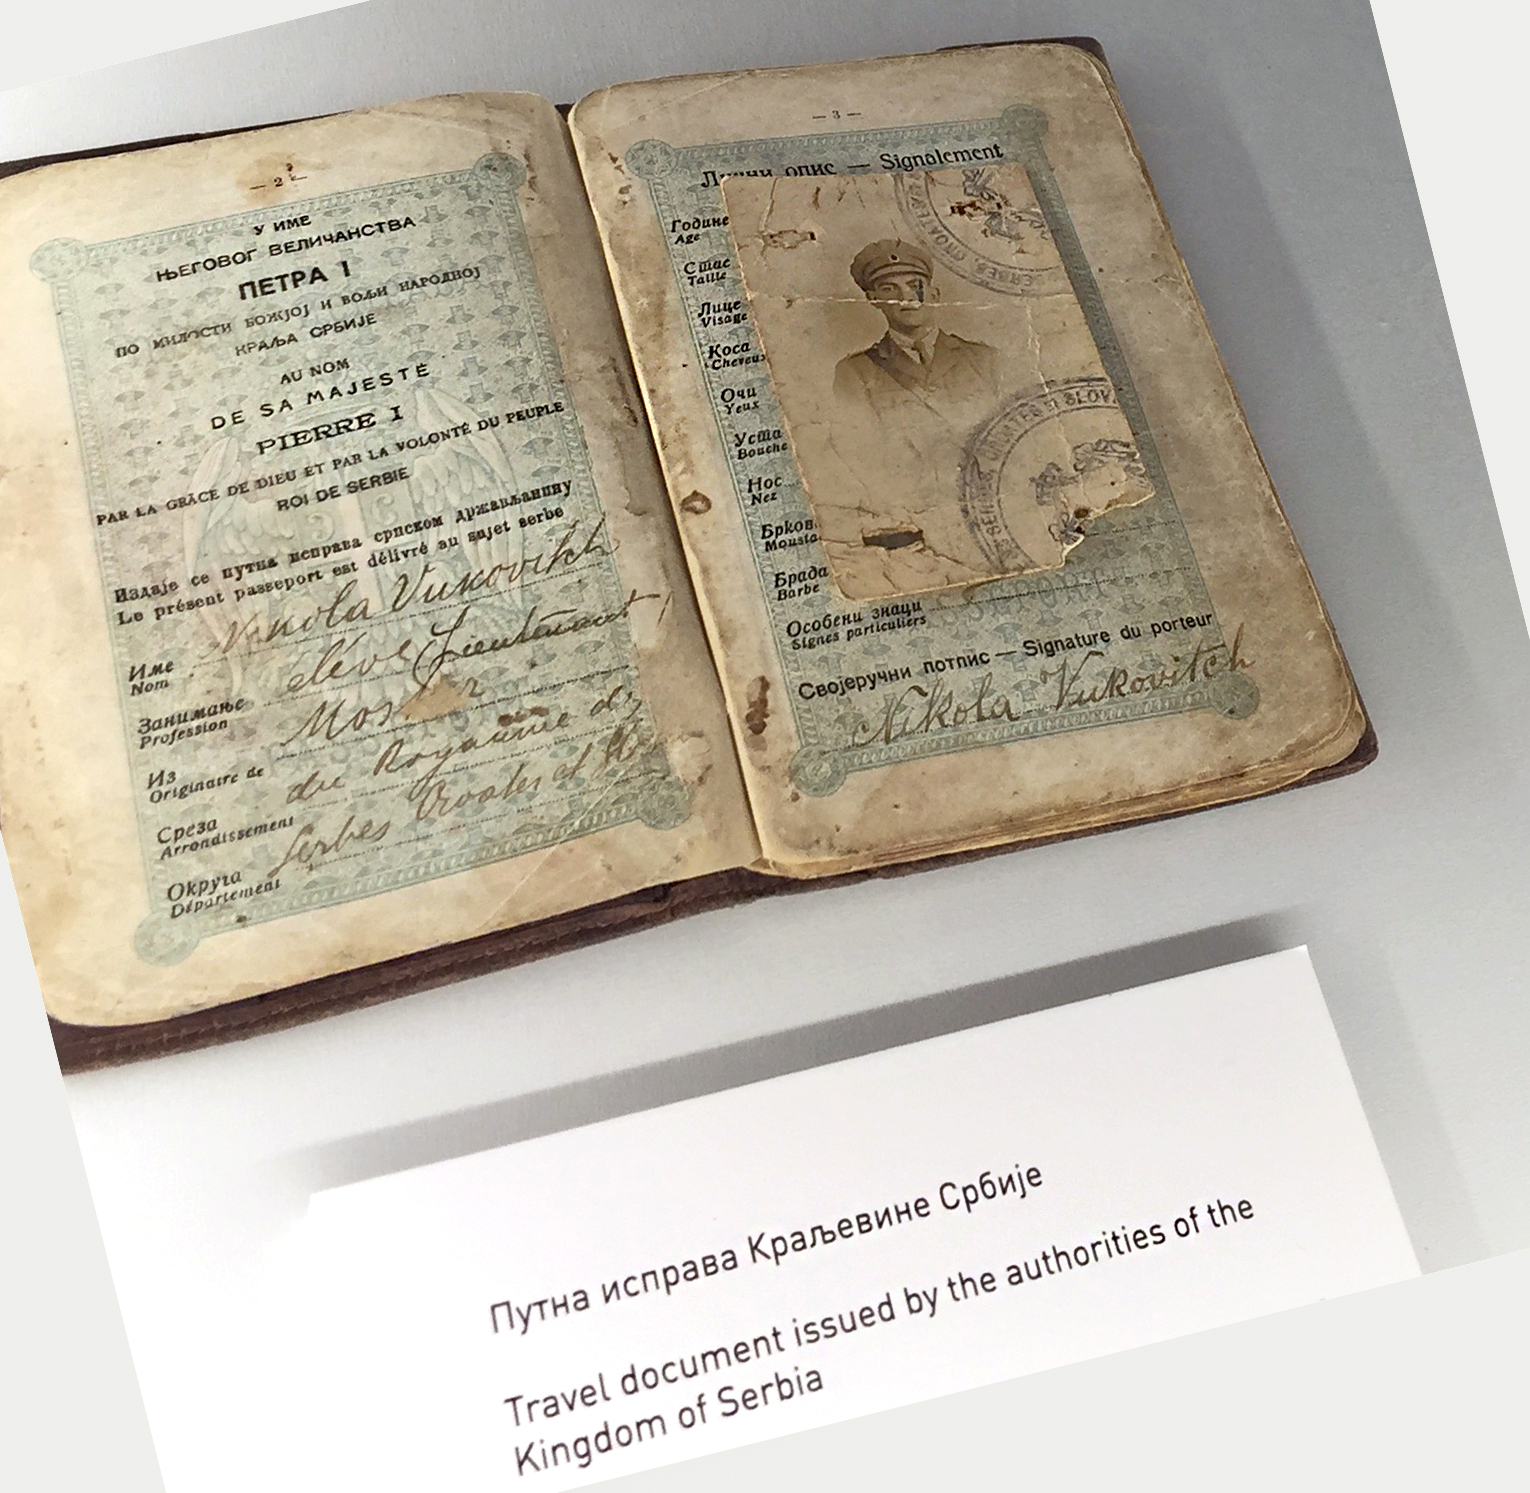 — 2 —
У ИМЕ
ЊЕГОВОГ ВЕЛИЧАНСТВА
ПЕТРА I
ПО МИЛОСТИ БОЖЈОЈ И ВОЉИ НАРОДНОЈ
КРАЉА СРБИЈЕ
AU NOM
DE SA MAJESTÉ
PIERRE I
PAR LA GRÂCE DE DIEU ET PAR LA VOLONTÉ DU PEUPLE
ROI DE SERBIE
Издаје се путна исправа српском држављанину
Le présent passeport est délivré au sujet serbe
Име Nikola Vukovitch
Nom
Занимање élève Lieutenant
Profession
Из
Originaire de
Среза du Royaume
Arrondissement
Округа Serbes Croates et
Département
— 3 —
опис — Signalement
Године
Age
Стас
Taille
Лице
Visage
Коса
Cheveux
Очи
Yeux
Уста
Bouche
Нос
Nez
Брада
Barbe
Особени знаци
Signes particuliers
Својеручни потпис — Signature du porteur
Nikola Vukovitch
SERBES, CROATES
Путна исправа Краљевине Србије
Travel document issued by the authorities of the
Kingdom of Serbia